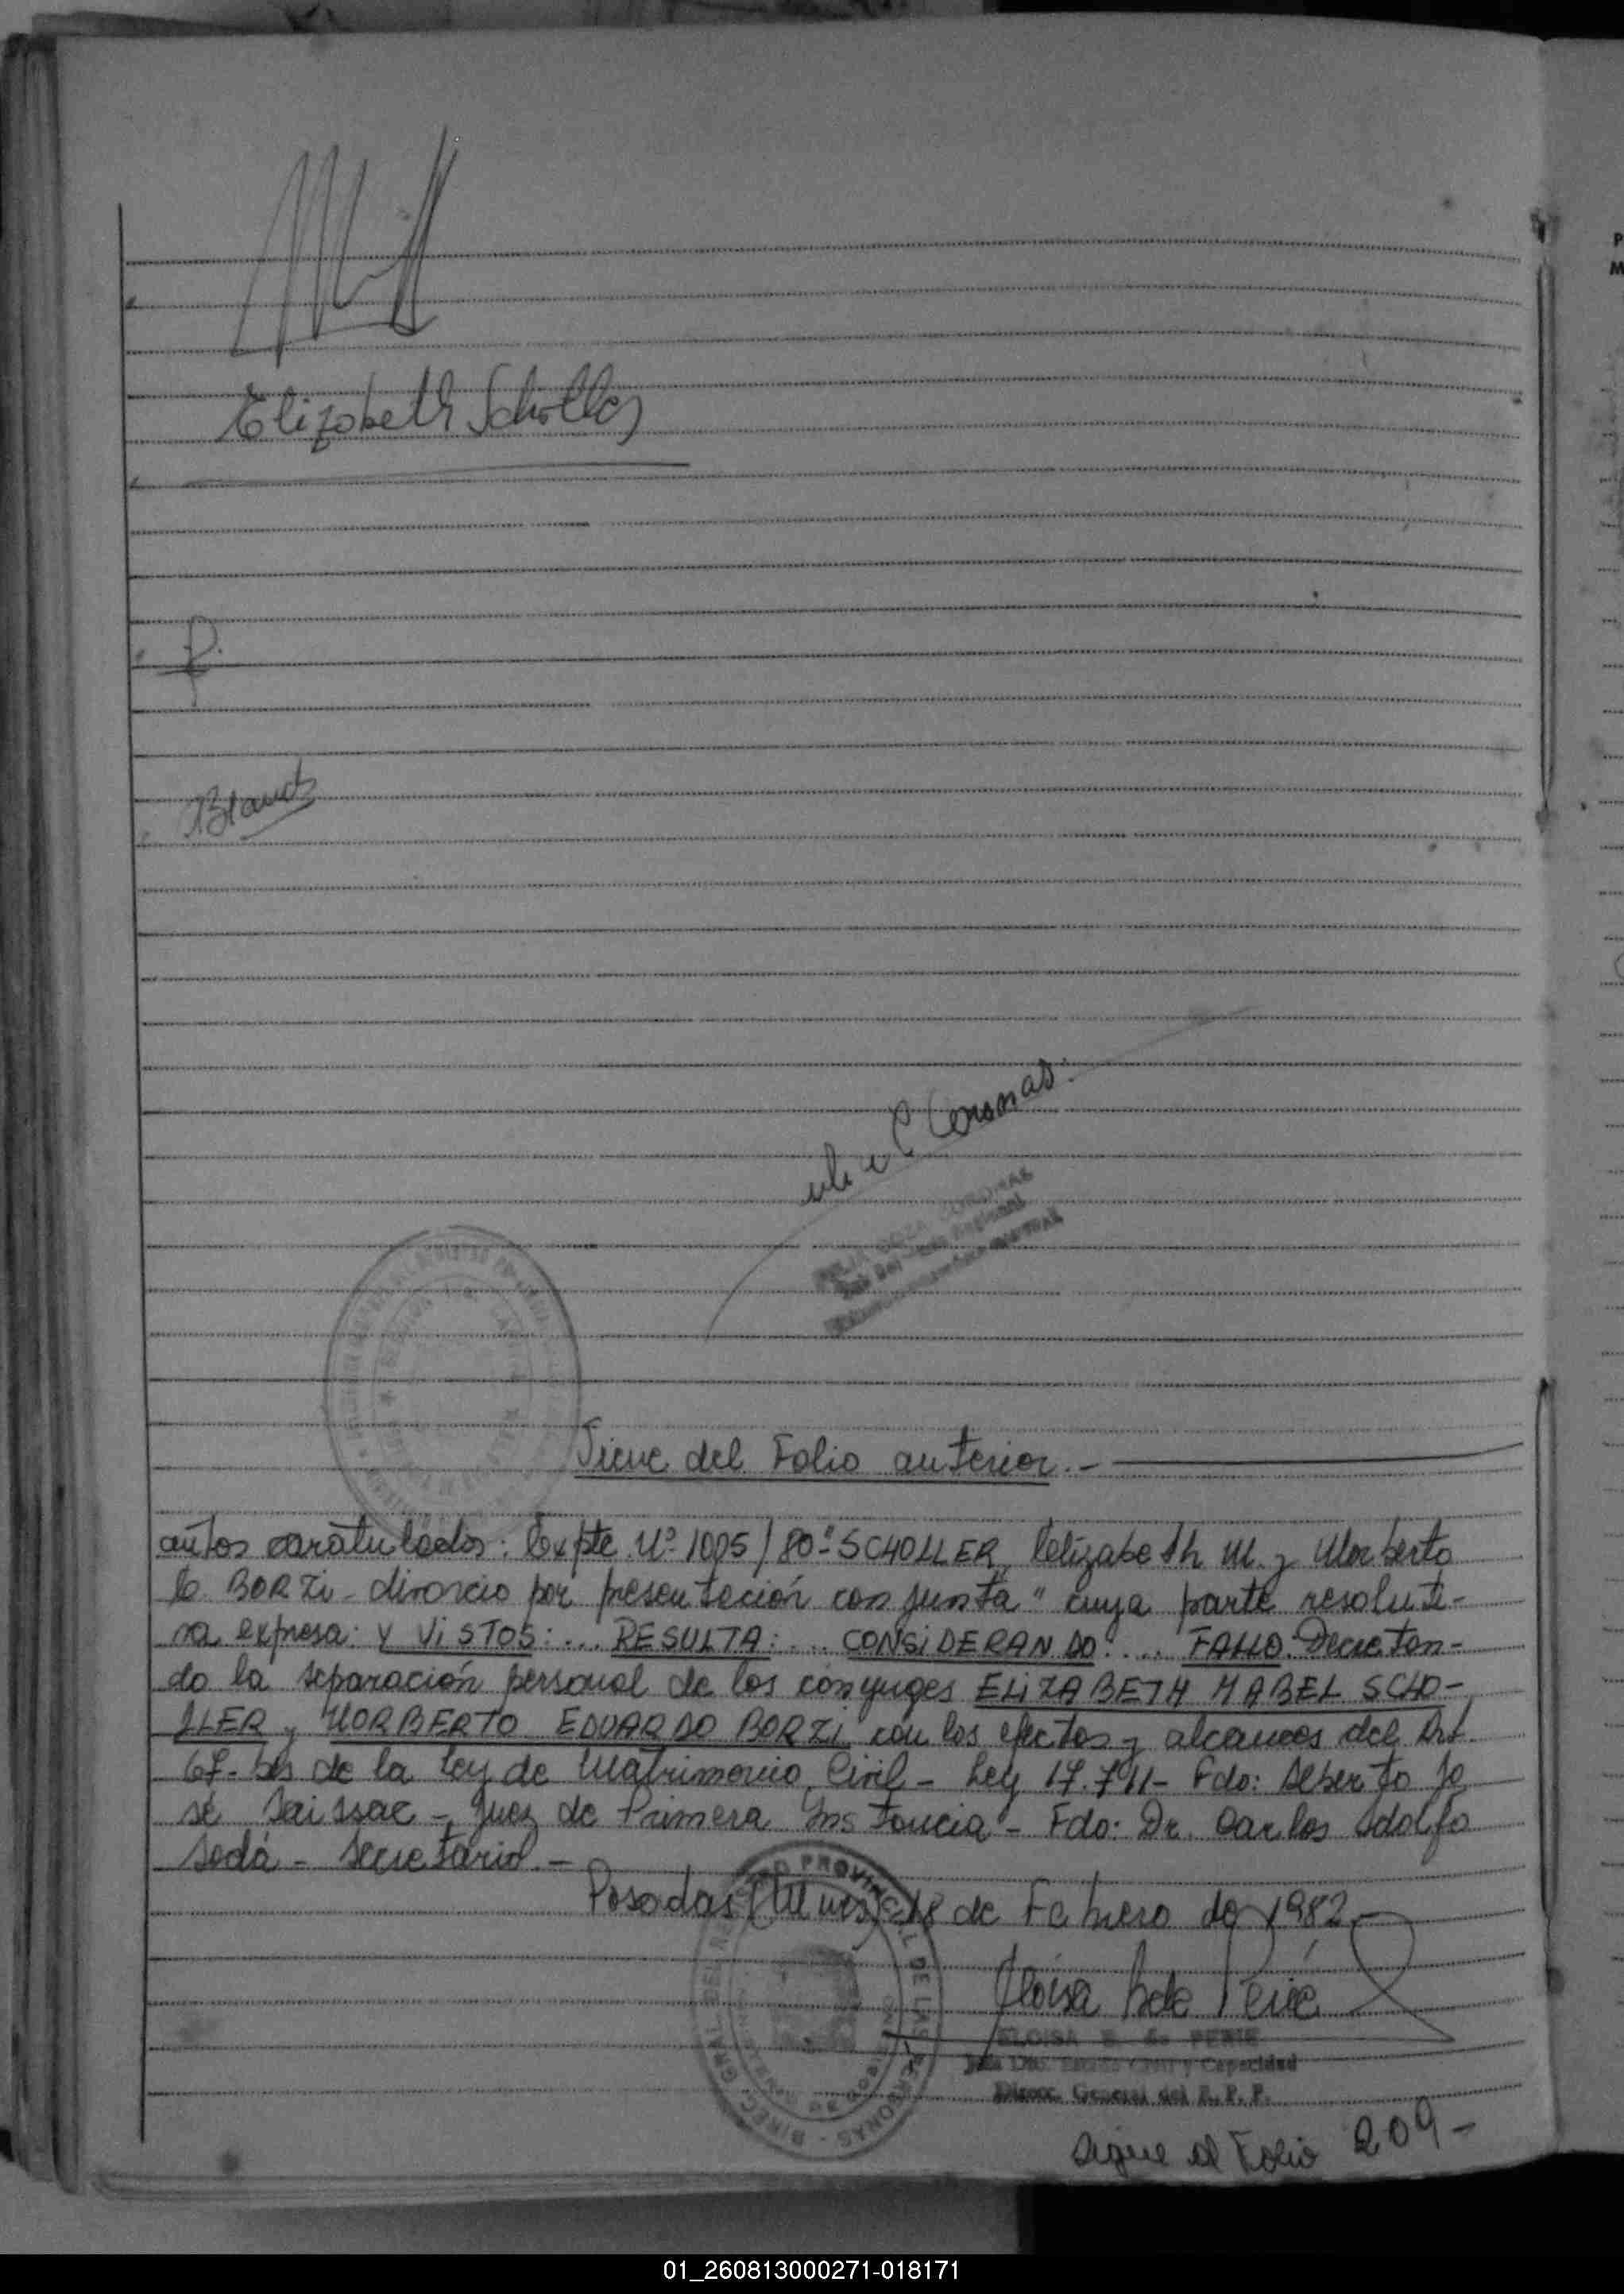 Elizabeth Scholler
Viene del Folio anterior.-
autos caratulados: Expte. Nº 1005/80 "SCHOLLER, Elizabeth M. y Norberto
E. BORZI - divorcio por presentación conjunta" cuya parte resoluti-
va expresa: Y VISTOS:... RESULTA:... CONSIDERANDO:.... FALLO: Decretan-
do la separación personal de los cónyuges ELIZABETH MABEL SCHO-
LLER y NORBERTO EDUARDO BORZI con los efectos y alcances del Art.
67-bis de la Ley de Matrimonio Civil - Ley 17.711- Fdo: Alberto Jo
sé - Juez de Primera Instancia - Fdo: Dr. Carlos Adolfo
- Secretario.-
Posadas (Mnes), 18 de Febrero de 1982.-
ELOISA B. de PERIE
Jefe Dto. Estado Civil y Capacidad
Direcc. General del R. P. P.
Sigue al Folio 209-
01_260813000271-018171